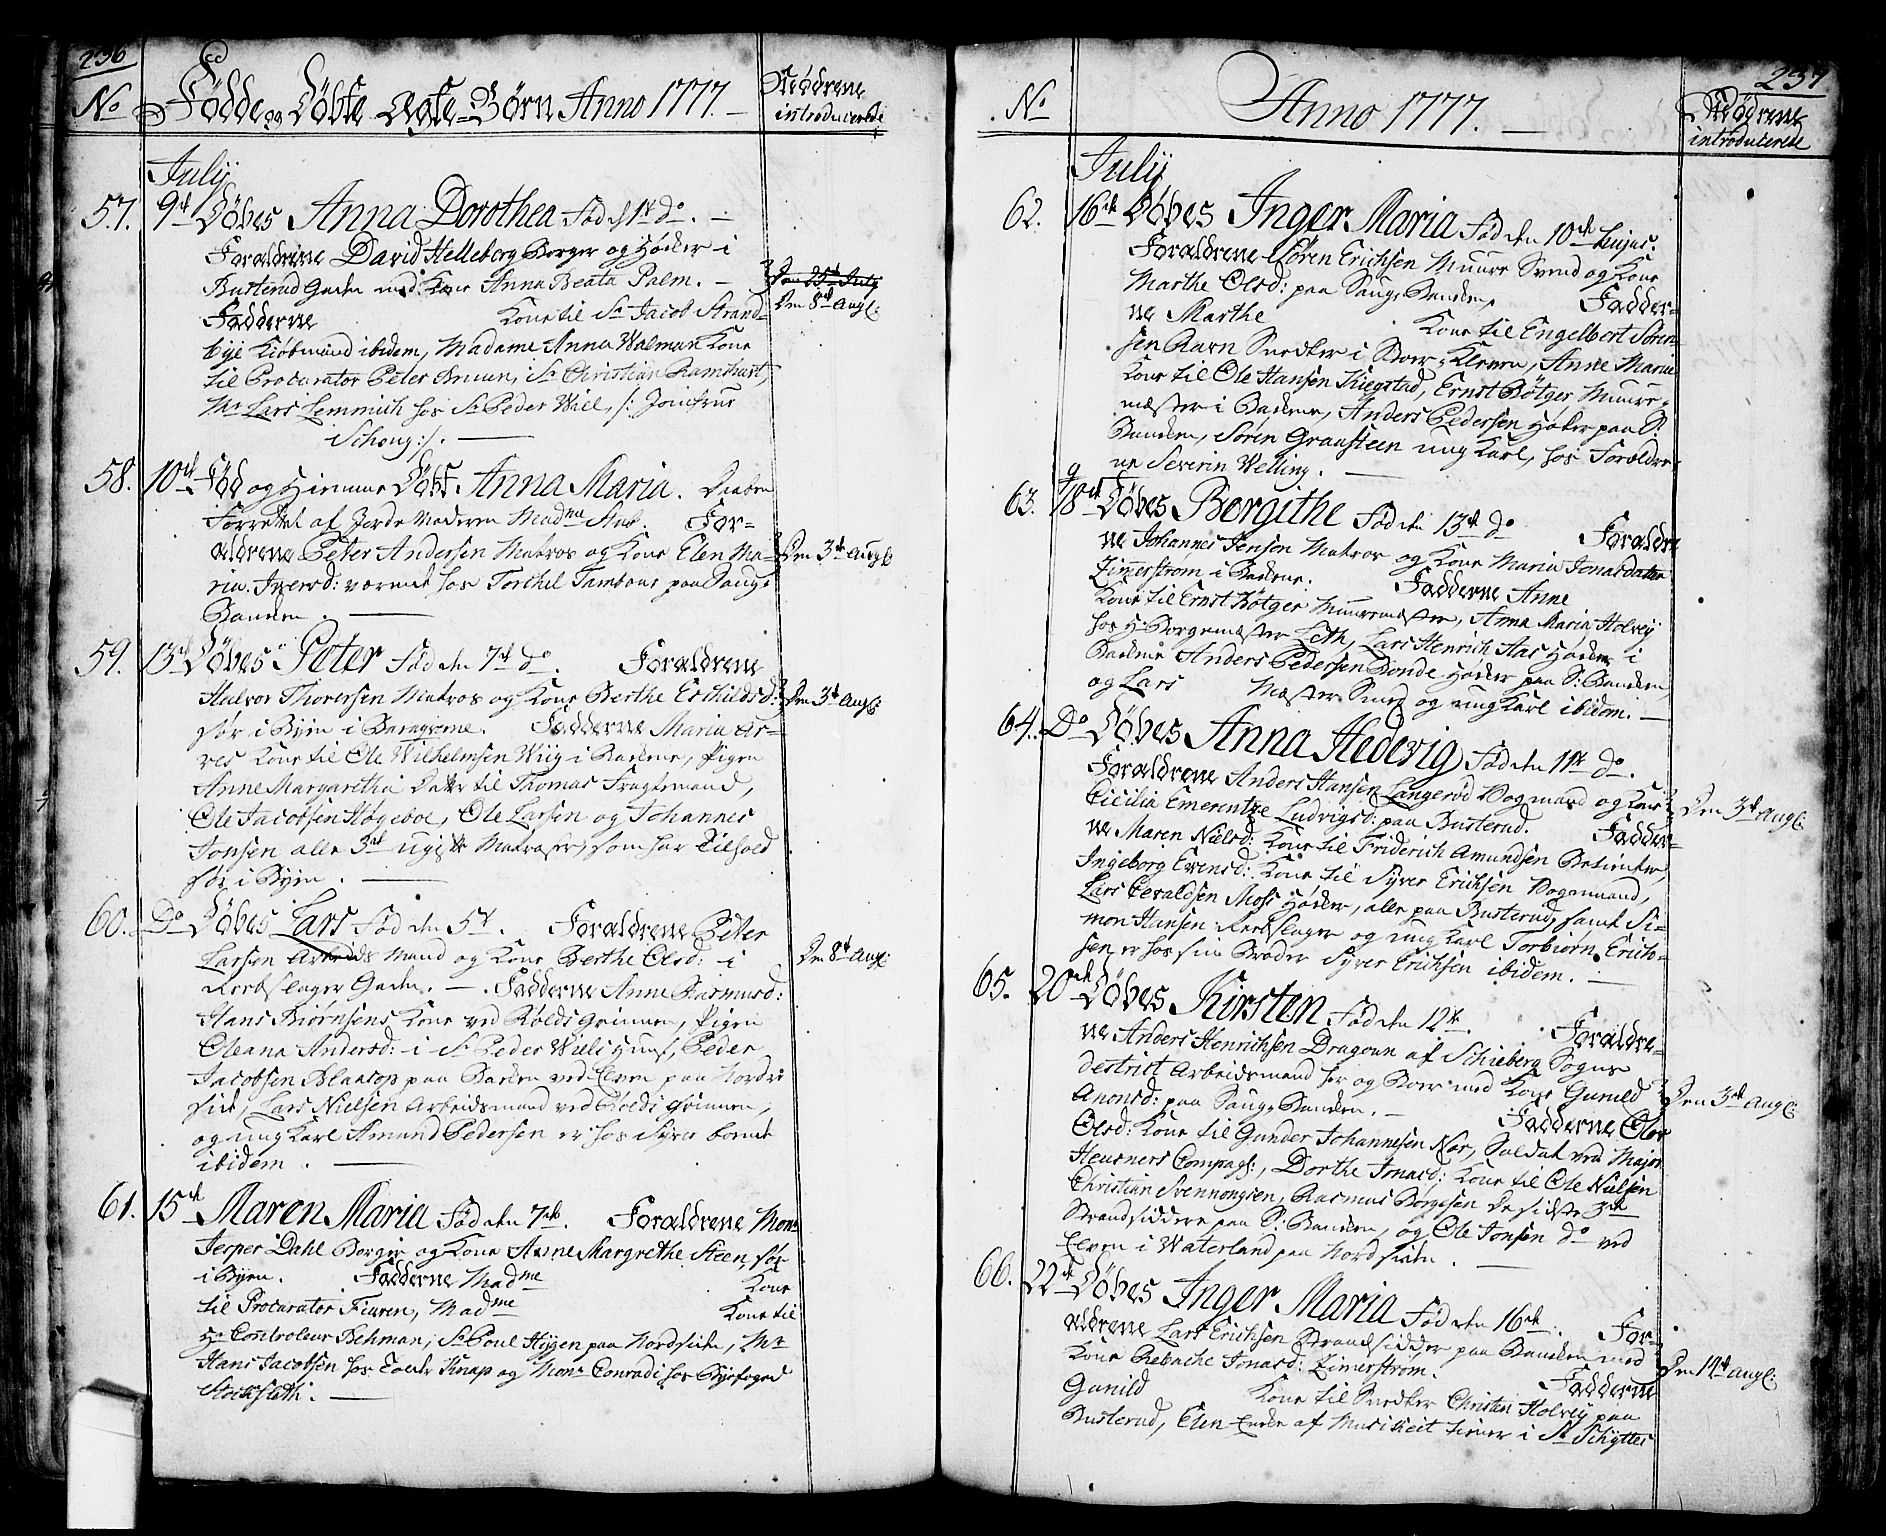 236
No
Fødde og Døbte Ægte-Børn Anno 1777.
Mødrene
introducerede
July
57. 9de Døbes Anna Dorothea Fød d. 1te do.
Forældrene David Helleborg Borger og Høcker i
Busterud Gaden med Kone Anna Beata Palm.
Den 25de July
Den 8de Augl:
Fadderne Kone til Sr Jacob Strand-
bye Kiøbmand ibidem, Madame Anna Walman Kone
til Procurator Peter Bruun, Sr Christian Ramhart,
Mr Lars Lemmich hos Sr Peder Will, /: Jomfrue
Schong :/.
58. 10de Fød og Hiemme Døbt Anna Maria. Daaben
Forrettet af Jorde Moderen Madme Stub. For-
ældrene Peter Andersen Matros og Kone Elen Ma-
Den 3de Augl:
ria Iversd: værende hos Torchil Tambour paa Saug-
Banken.
59. 13de Døbes Peter Fød den 7de do. Forældrene
Halvor Thoresen Matros og Kone Berthe Erchildsd:
Den 3de Augl:
før i Byen i Baragerne. Fadderne Maria Ar-
ves Kone til Ole Wilhelmsen Wiig i Backene, Pigen
Anne Margaretha Datter til Thomas Fragtemand,
Ole Jacobsen Høgeboe, Ole Larsen og Johannes
Jonsen alle 3de ugifte Matroser, som har Tilhold
før i Byen.
60. Do Døbes Lars Fød den 5te. Forældrene Peter
Larsen Arbeids Mand og Kone Berthe Olsd: i
Den 8de Augl:
Rerbslager Gaden. Fadderne Anne Rasmusd:
Hans Biørnsens Kone ved Kolds Grinnen, Pigen
Oleana Andersd: i Sr Peder Wiels Huus, Peder
Jacobsen Blaatop paa Backen ved Elven paa Nordre
side, Lars Nielsen Arbeidsmand ved Kolds Grinnen,
og ung Karl Amund Pedersen er hos Syver
ibidem.
61. 15de Maren Maria Fød den 7de. Forældrene Monr
Jesper Dahl Borger og Kone Anne Margrethe Steen, før
i Byen. Fadderne Madme Kone
til Procurator Fiuren, Madme Kone til
Hr Controleur Behman, Sr Poul Hygen paa Nordsiden, Mr
Hans Jacobsen hos Knap og Monr Conradi hos Byefoged
Stockfleth.
237
No
Anno 1777.
Mødrene
introducerede
July
62. 16de Døbes Inger Maria Fød den 10de hujus.
Forældrene Søren Erichsen Muure Svend og Kone
Marthe Olsd: paa Saug Banken, Fadder-
ne Marthe Kone til Engelbert Søren-
sen Aarn Snedker i Kleven, Anne Marie
Kone til Ole Hansen Kiegstad, Ernst Bötger Muure-
mæster i Backene, Anders Pedersen Høker paa S:
Banken, Sören Grausteen ung Karl, hos Forældre-
ne Severin Welling.
63. 18de Døbes Borgithe Fød den 13de do Forældre
ne Johannes Jensen Matros og Kone Maria Jonasdatter
Zimerstrøm i Backene. Fadderne Anne
Kone til Ernst Bötger Muuremæster, Anna Maria Holvey
hos H: Borgemæster Leth, Lars Henrich Aas Høcker i
Backene Anders Pedersen Bonde Høcker paa S: Banken,
og Lars Mæster Smed og ung Karl ibidem.
64. Do Døbes Anna Hedevig Fød den 11te do.
Forældrene Anders Hansen Langerød Vogmand og Kone
Den 3de Augl:
Cicilia Emerentze Ludvigsd: paa Busterud. Fadder-
ne Maren Nielsd: Kone til Friderich Amundsen Betienter,
Ingeborg Evensd: Kone til Syver Erichsen Vogmand,
Lars Evaldsen Moss Høcker, alle paa Busterud, samt Si-
mon Hansen Rerbslager og ung Karl Torbiørn Erich-
sen er hos sin Broder Syver Erichsen ibidem.
65. 20de Døbes Kirsten Fød den 12te. Forældre-
ne Anders Henrichsen Dragoun af Schieberg Sogns
destrict Arbeidsmand her og Boer med Kone Gunild
Den 3de Augl:
Anonsd: paa Saug Banken. Fadderne Oloe
Olsd: Kone til Gunder Johannesen Noe, Soldat ved Major
Heusners Compagl:, Dorthe Jonasd: Kone til Ole Nielsen
Christian Svennongsen, Rasmus Borgesen De sidste 3de
Strandsiddere paa S: Banken, og Ole Jonsen do ved
Elven i Waterland paa Nordsiden.
66. 22de Døbes Inger Maria Fød den 16de. For-
ældrene Lars Erichsen Strandsidder paa Banken med
Kone Rebache Jonasd: Zimerstrøm. Fadderne
Den 14de Augl:
Gunild Kone til Snedker Christen Holvey paa
Busterud, Elen Enke af Musikeit tiener i Sr Schyttes